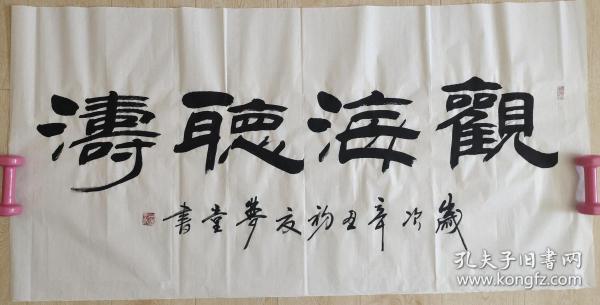 觀海聽濤
歲次辛丑初夏夢堂書
孔夫子旧書网
www.kongfz.com